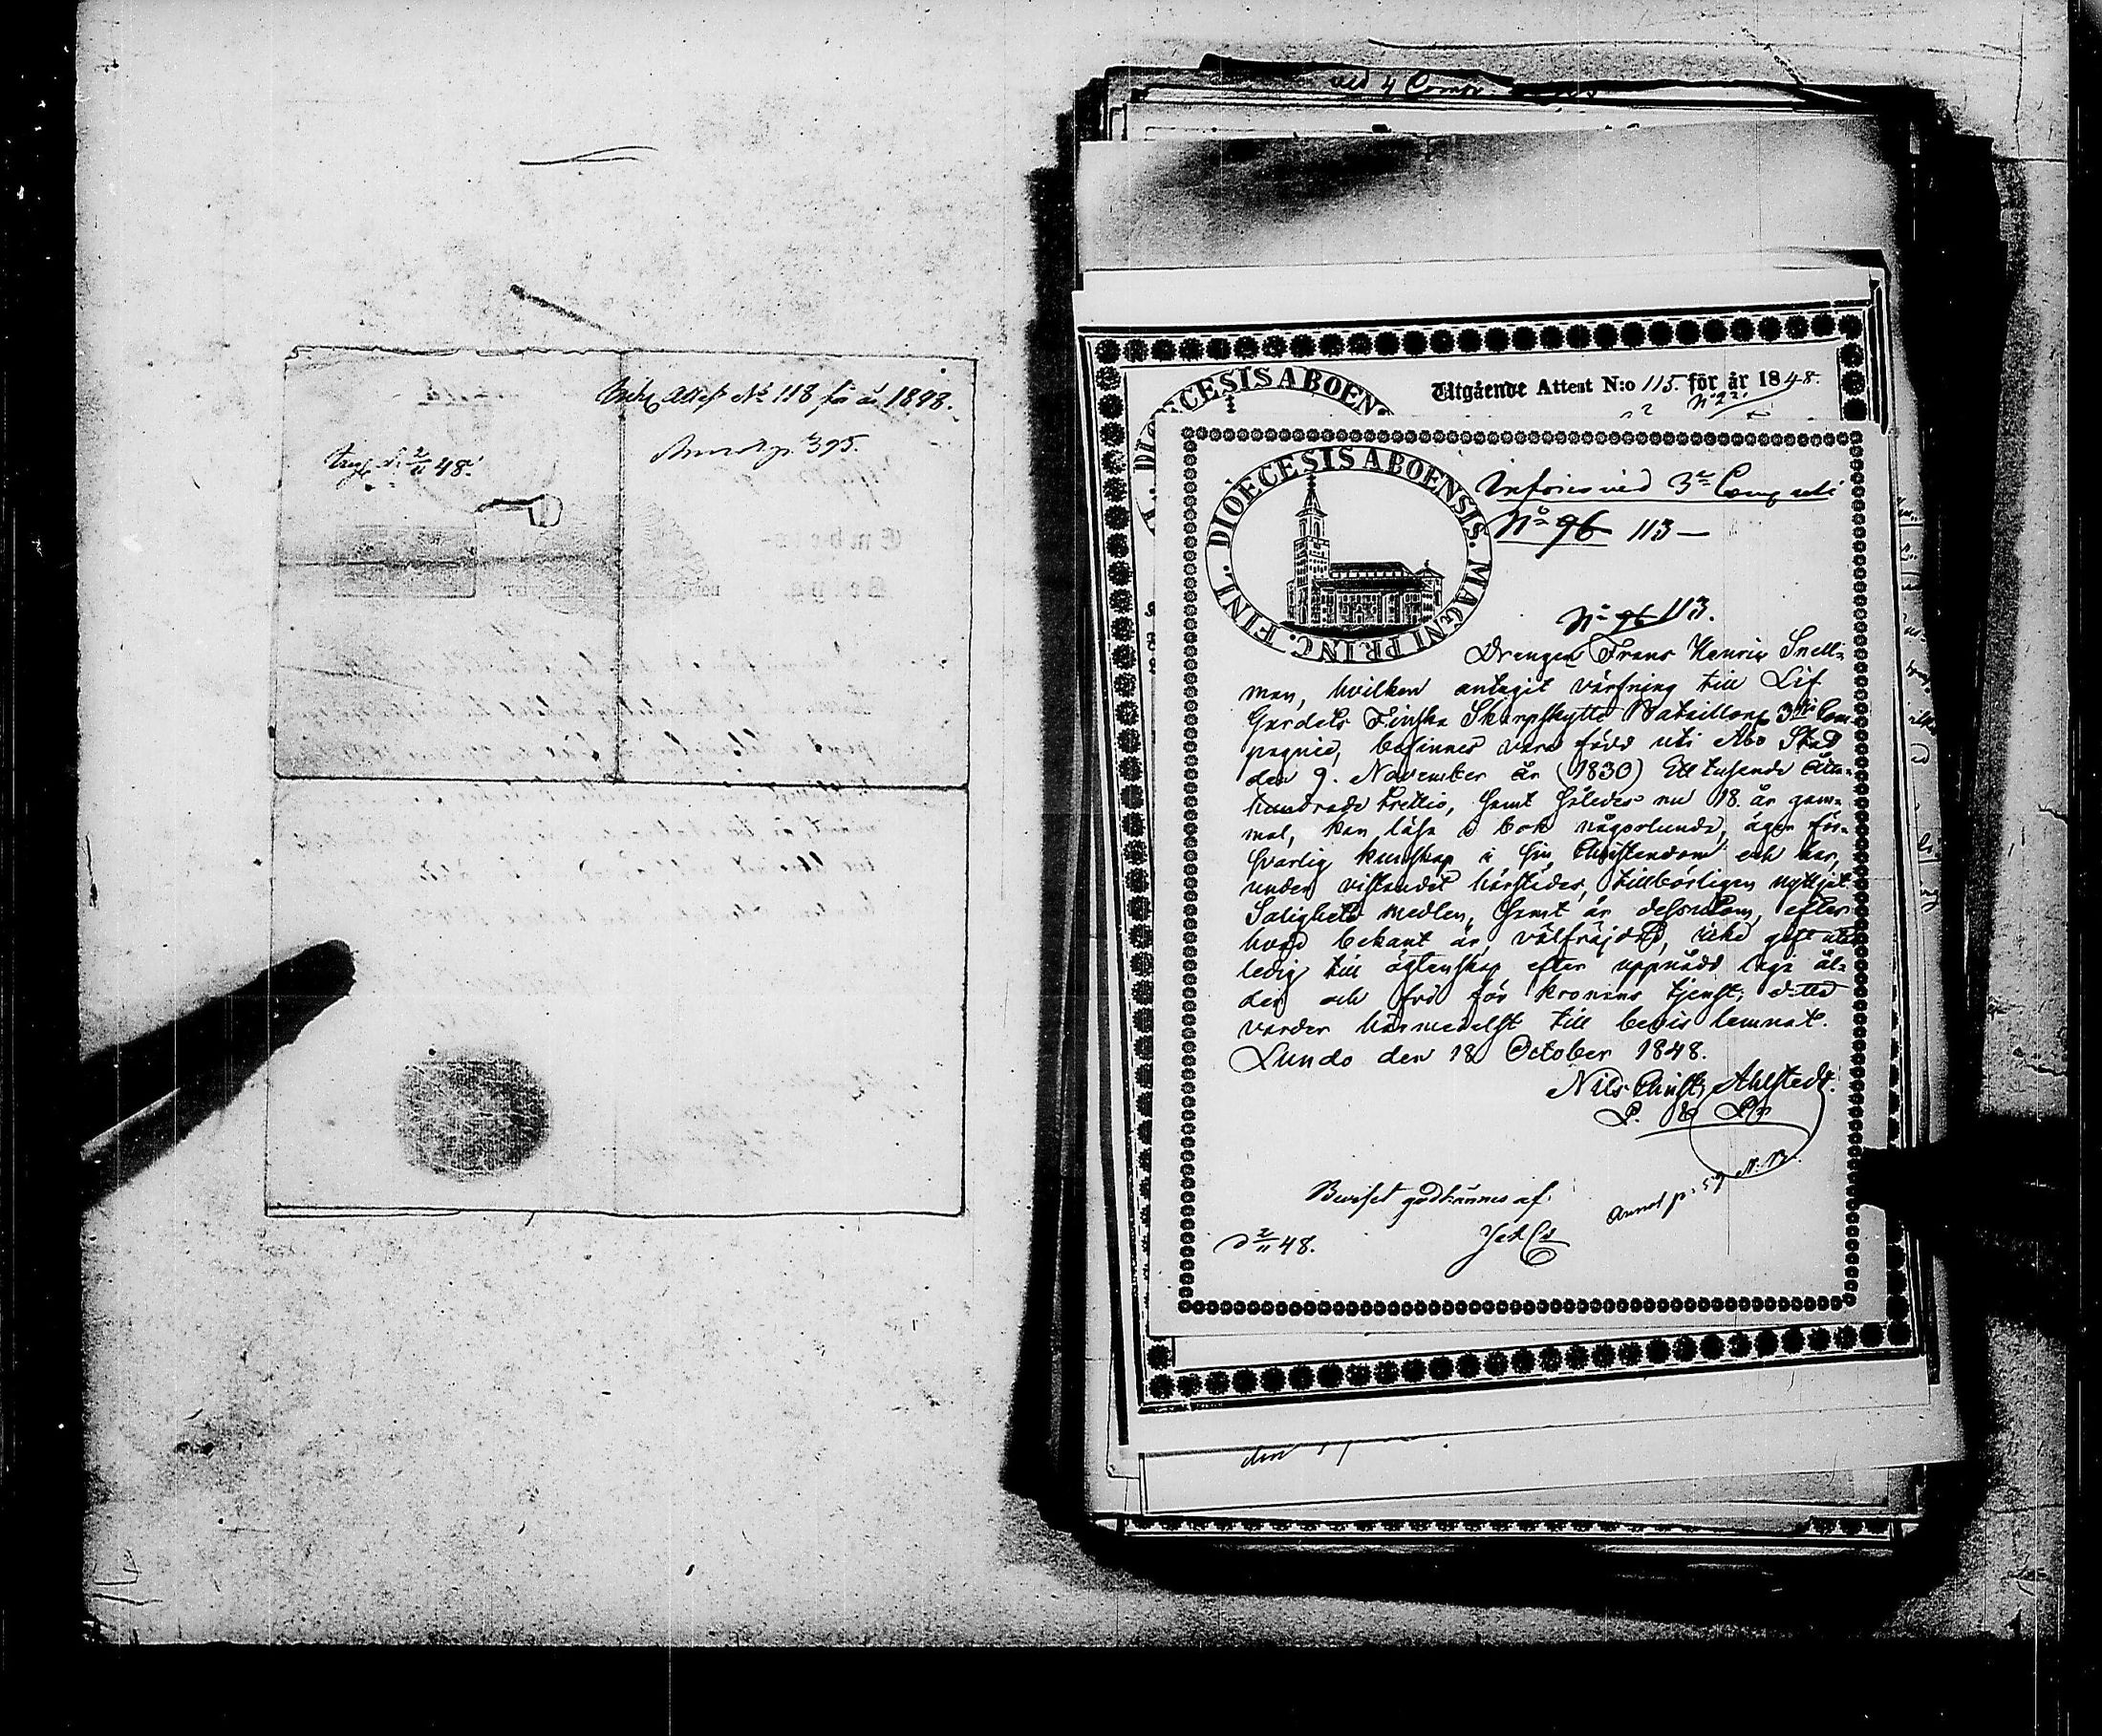 Attest No 118 för år 1848.
48.
p. 395.
ved 4 Comp
Utgående Attest N:o 115. för år 1848.
DIOECESIS ABOENSIS. MAGNI PRINC. FINL.
3ne Compani
No 96 113 —
No 96 113.
Drengen Frans Henric Snell-
man, hvilken antagit värfning till Lif
Gardets Finska Skarpskytte Bataillons 3dje Com-
pagnie, befinnes vara född uti Åbo Stad
den 9. November år (1830) Ett tusende åtta-
hundrade trettio, samt således nu 18. år gam-
mal, kan läsa i bok någorlunda, äger för-
svarlig kunskap i sin Christendom och har,
under vistandet härstädes, tillbörligen nyttjat
Salighets medlen, samt är dessutom, efter
hvad bekant är, välfräjdad, icke gift utan
ledig till ägtenskap efter uppnådd laga ål-
der och fri för kronans tjenst; detta
varder härmedelst till bevis lemnat.
Lundo den 18 October 1848.
Nils Christ. Ahlstedt.
Beviset godkännes af
Annot p. 59
48.
den